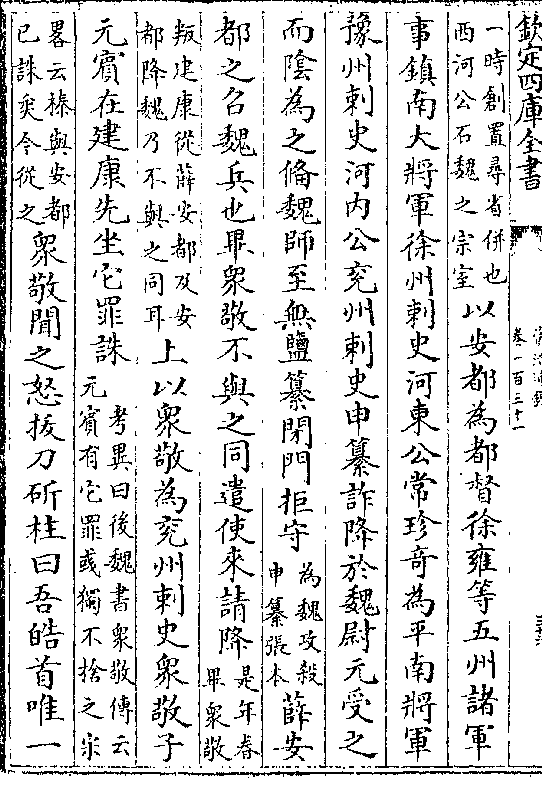 欽定四庫全書
資治通鑑
卷一百三十一
一時創置尋省併也
西河公石魏之宗室
以安都為都督徐雍等五州諸軍
事鎮南大將軍徐州刺史河東公常珍奇為平南將軍
豫州刺史河內公兗州刺史申纂詐降於魏尉元受之
而陰為之備魏師至無鹽纂閉門拒守
為魏攻殺
申纂張本
薛安
都之召魏兵也畢衆敬不與之同遣使來請降
是年春
畢衆敬
叛建康從薛安都及安
都降魏乃不與之同耳
上以衆敬為兗州刺史衆敬子
元賓在建康先坐它罪誅
考異曰後魏書衆敬傳云
元賓有它罪彧獨不捨之宋
畧云櫟與安都
已誅矣今從之
衆敬聞之怒拔刀斫柱曰吾皓首唯一